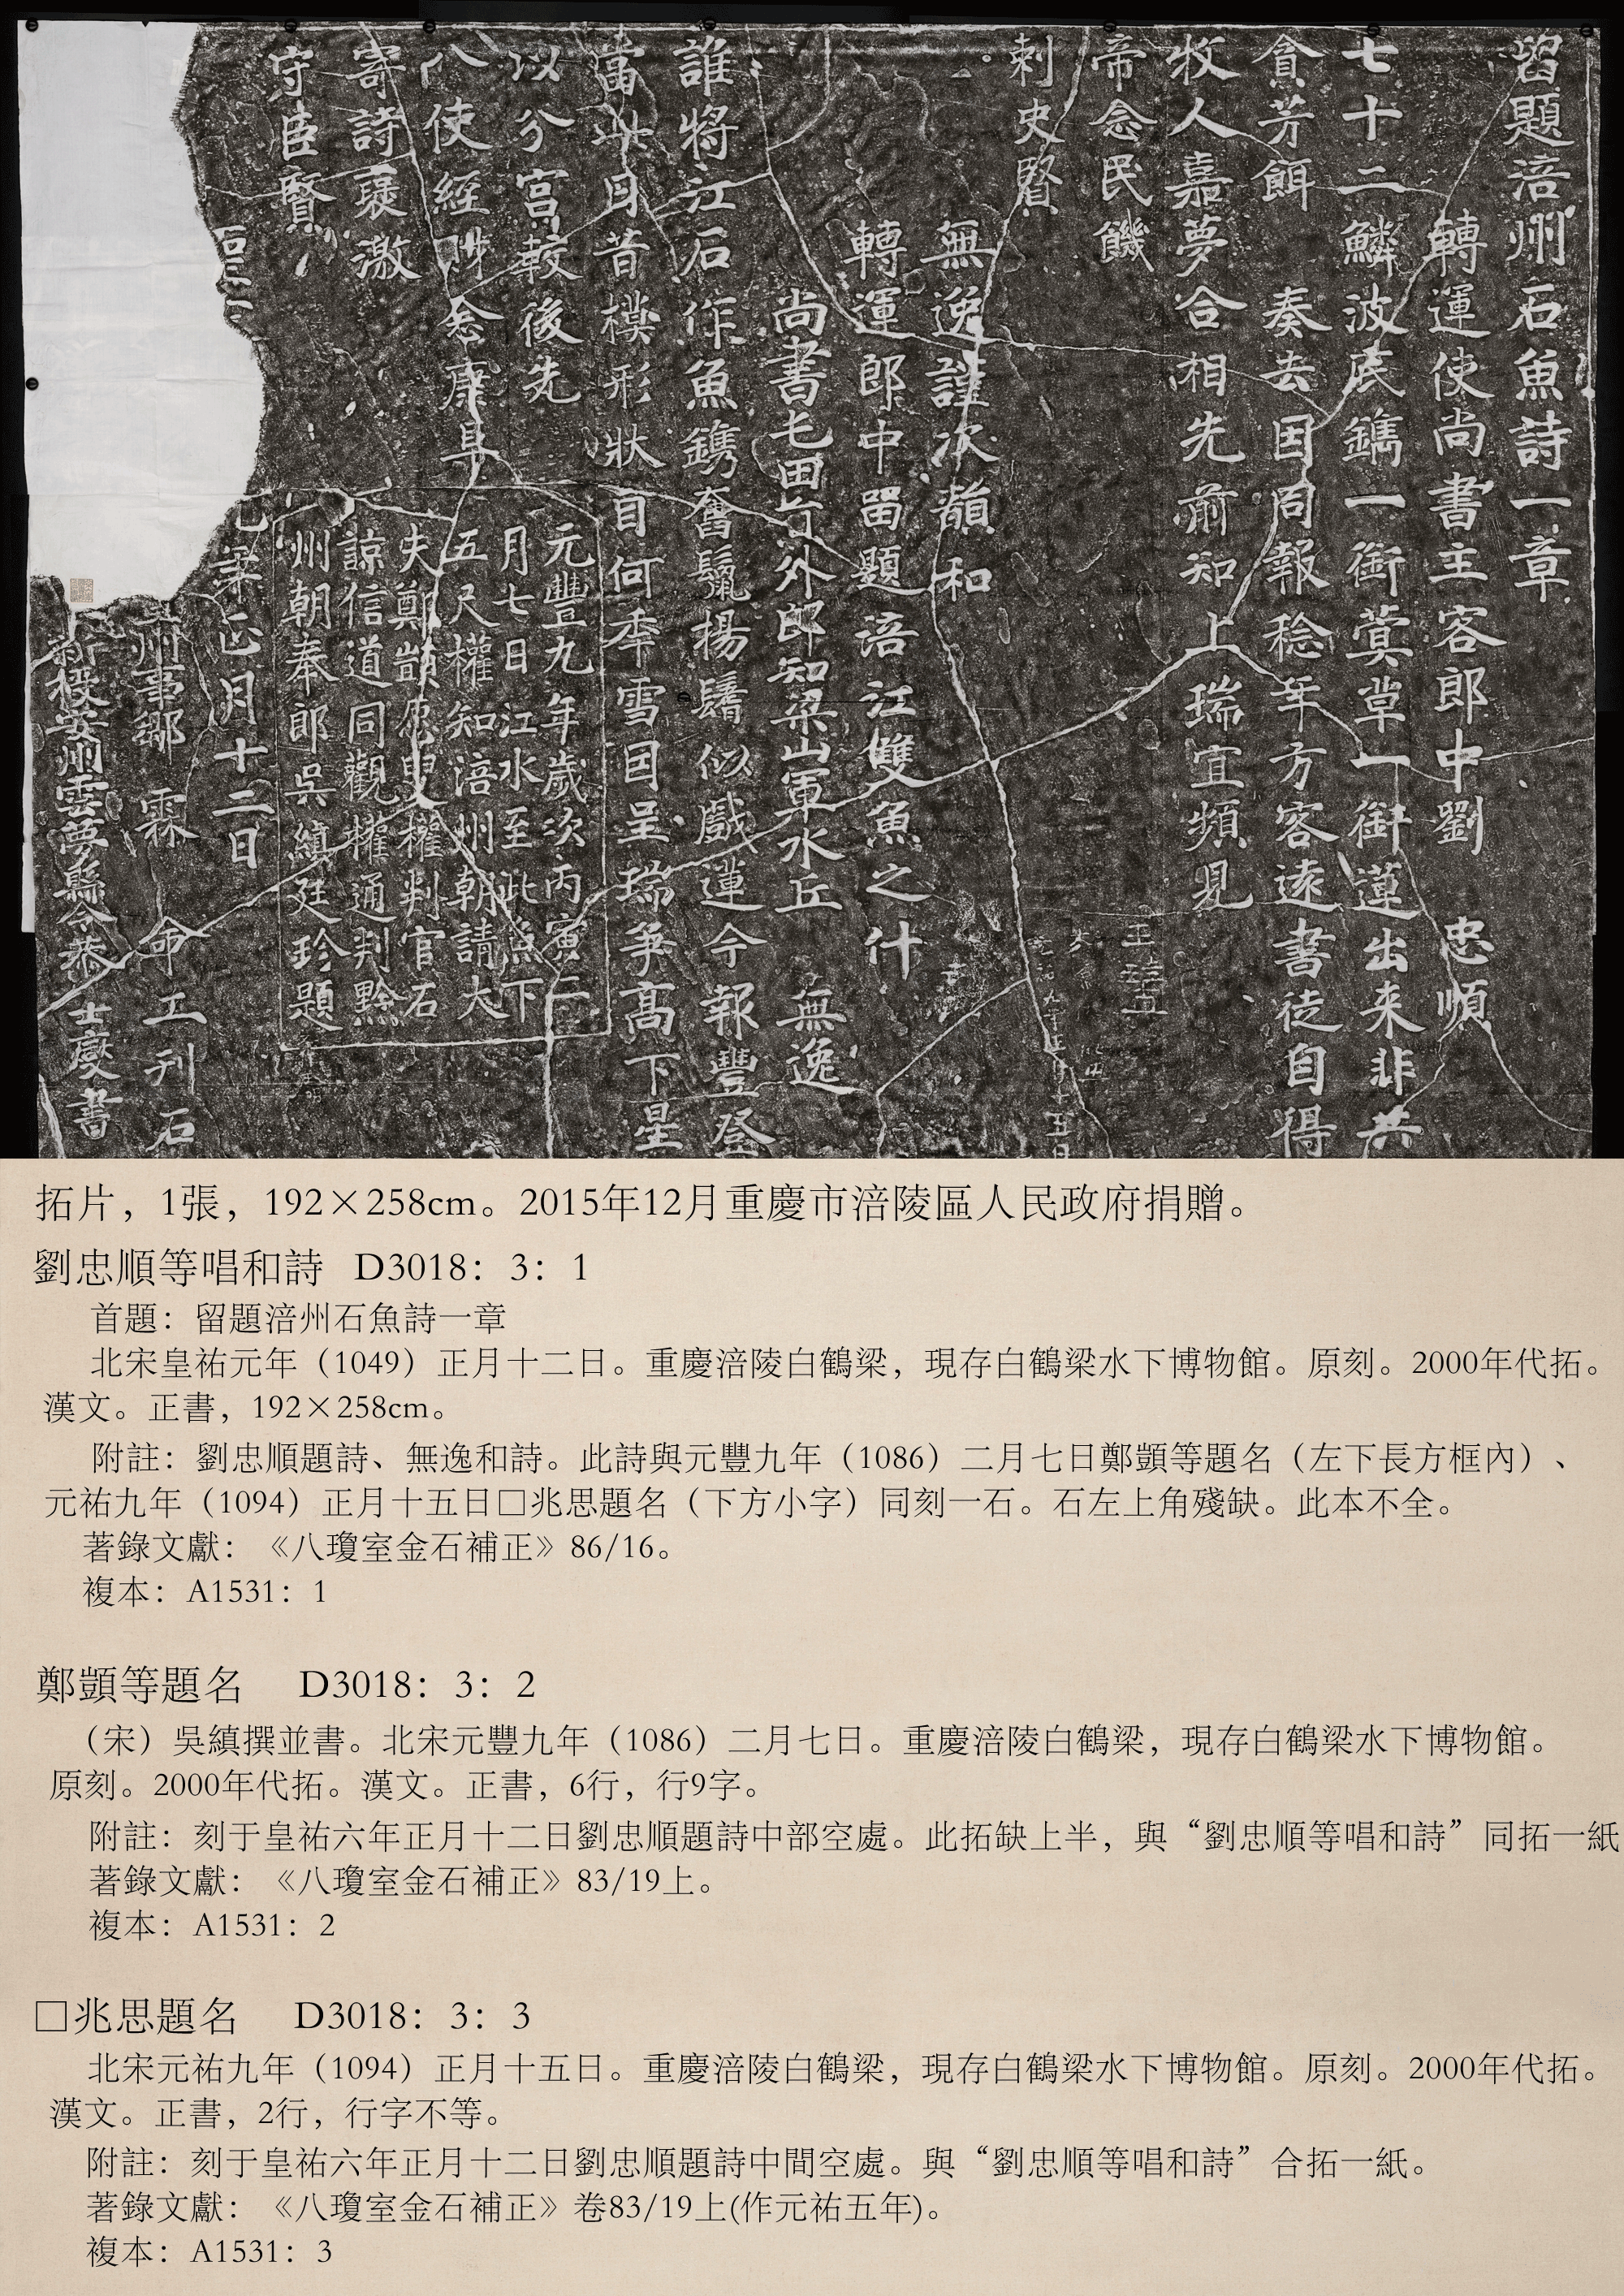 留題涪州石魚詩一章
轉運使尚書主客郎中劉 忠順
七十二鱗波底鐫一銜蓂草一銜蓮出来非共
貪芳餌 奏去因同報稔年方客遠書徒自得
牧人嘉夢合相先前知上瑞宜頻見
帝念民饑
刺史賢
無逸謹次韻和
轉運郎中留題涪江雙魚之什
尚書屯田員外郎知梁山軍水丘 無逸
誰將江石作魚鐫奮鬣揚鬐似戲蓮今報豐登
當此日昔模形狀自何年雪因呈瑞爭高下星
以分宮較後先
八使經財念康阜
寄詩褒激
守臣賢
元豐九年歲次丙寅二
月七日江水至此魚下
五尺權知涪州朝請大
夫鄭顗愿叟權判官石
諒信道同觀權通判黔
州朝奉郎吳縝廷珍題
王珪直
正月十五日
正月十二日
州事鄔 霖 命工刊石
新授安州雲夢縣令恭 士燮書
拓片，1張，192×258cm。2015年12月重慶市涪陵區人民政府捐贈。
劉忠順等唱和詩 D3018：3：1
首題：留題涪州石魚詩一章
北宋皇祐元年（1049）正月十二日。重慶涪陵白鶴梁，現存白鶴梁水下博物館。原刻。2000年代拓。
漢文。正書，192×258cm。
附註：劉忠順題詩、無逸和詩。此詩與元豐九年（1086）二月七日鄭顗等題名（左下長方框內）、
元祐九年（1094）正月十五日□兆思題名（下方小字）同刻一石。石左上角殘缺。此本不全。
著錄文獻：《八瓊室金石補正》86/16。
複本：A1531：1
鄭顗等題名 D3018：3：2
（宋）吳縝撰並書。北宋元豐九年（1086）二月七日。重慶涪陵白鶴梁，現存白鶴梁水下博物館。
原刻。2000年代拓。漢文。正書，6行，行9字。
附註：刻于皇祐六年正月十二日劉忠順題詩中部空處。此拓缺上半，與“劉忠順等唱和詩”同拓一紙
著錄文獻：《八瓊室金石補正》83/19上。
複本：A1531：2
□兆思題名 D3018：3：3
北宋元祐九年（1094）正月十五日。重慶涪陵白鶴梁，現存白鶴梁水下博物館。原刻。2000年代拓。
漢文。正書，2行，行字不等。
附註：刻于皇祐六年正月十二日劉忠順題詩中間空處。與“劉忠順等唱和詩”合拓一紙。
著錄文獻：《八瓊室金石補正》卷83/19上(作元祐五年)。
複本：A1531：3